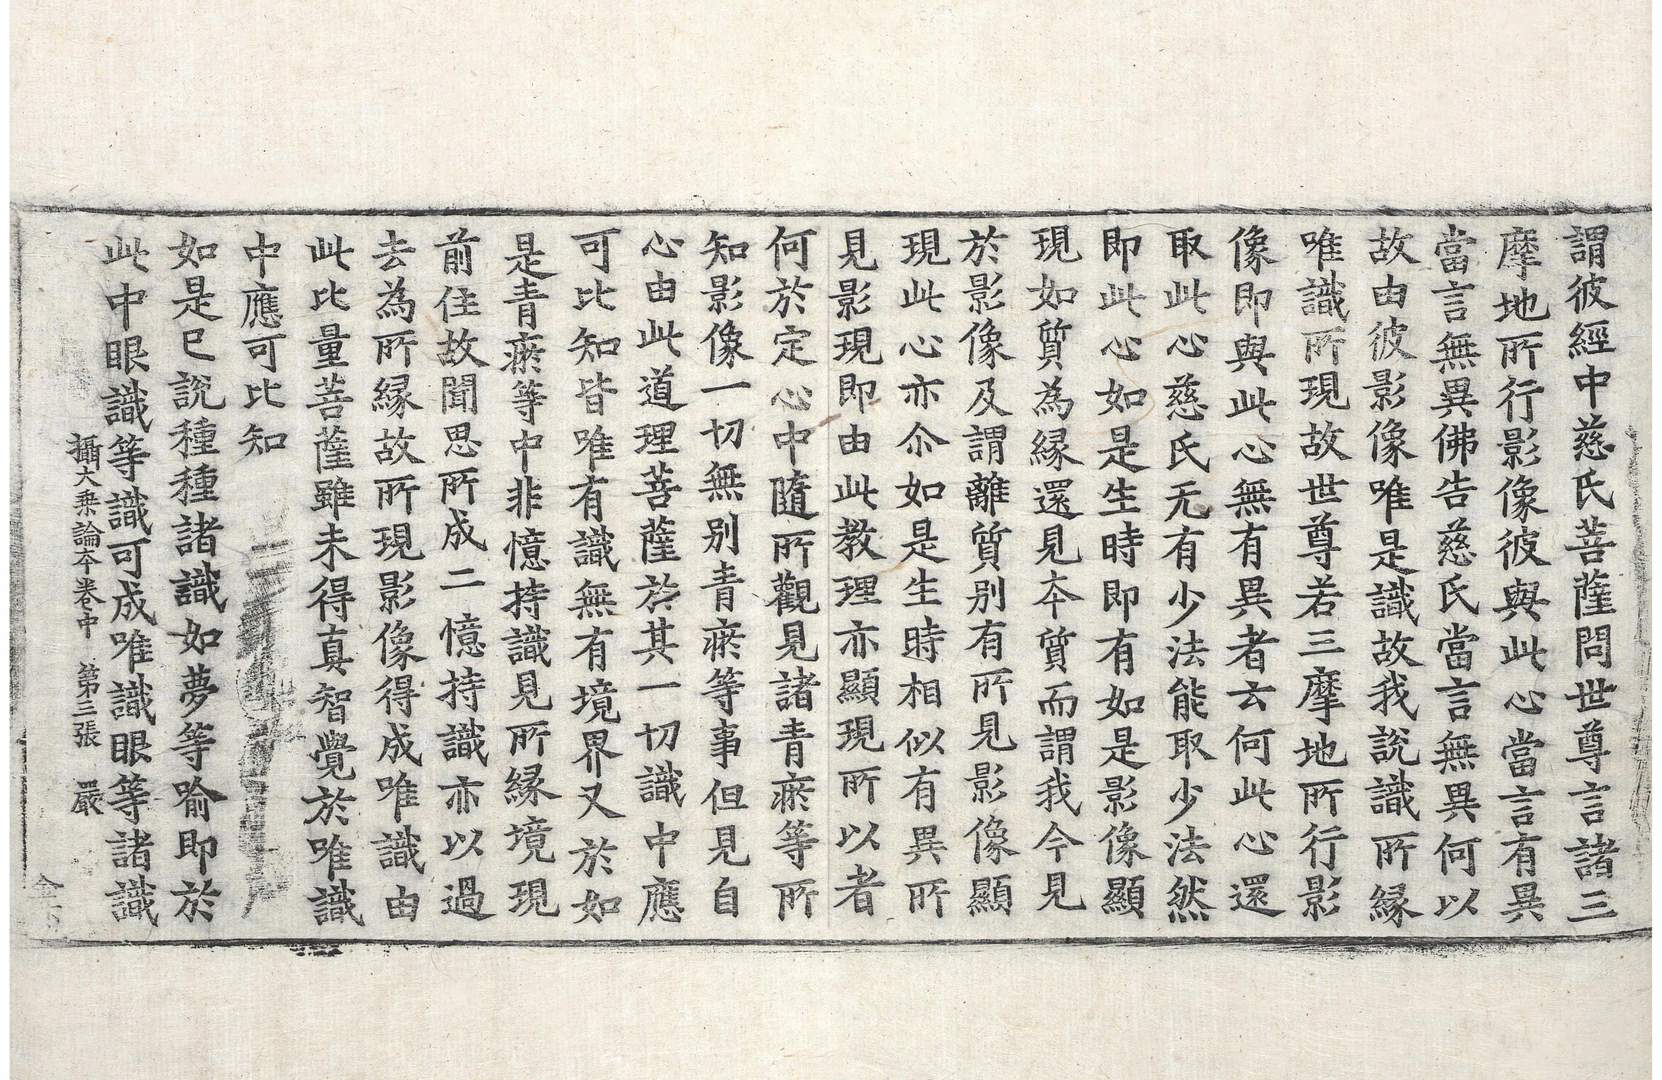 謂彼經中慈氏菩薩問世尊言諸三
摩地所行影像彼與此心當言有異
當言無異佛告慈氏當言無異何以
故由彼影像唯是識故我說識所緣
唯識所現故世尊若三摩地所行影
像即與此心無有異者云何此心還
取此心慈氏无有少法能取少法然
即此心如是生時即有如是影像顯
現如質為緣還見夲質而謂我今見
於影像及謂離質別有所見影像顯
現此心亦尒如是生時相似有異所
見影現即由此教理亦顯現所以者
何於定心中隨所觀見諸青瘀等所
知影像一切無别青瘀等事但見自
心由此道理菩薩於其一切識中應
可比知皆唯有識無有境界又於如
是青瘀等中非憶持識見所緣境現
前住故聞思所成二憶持識亦以過
去為所緣故所現影像得成唯識由
此比量菩薩雖未得真智覺於唯識
中應可比知
如是已說種種諸識如夢等喻即於
此中眼識等識可成唯識眼等諸識
攝大乗論夲卷中 第三張 嚴